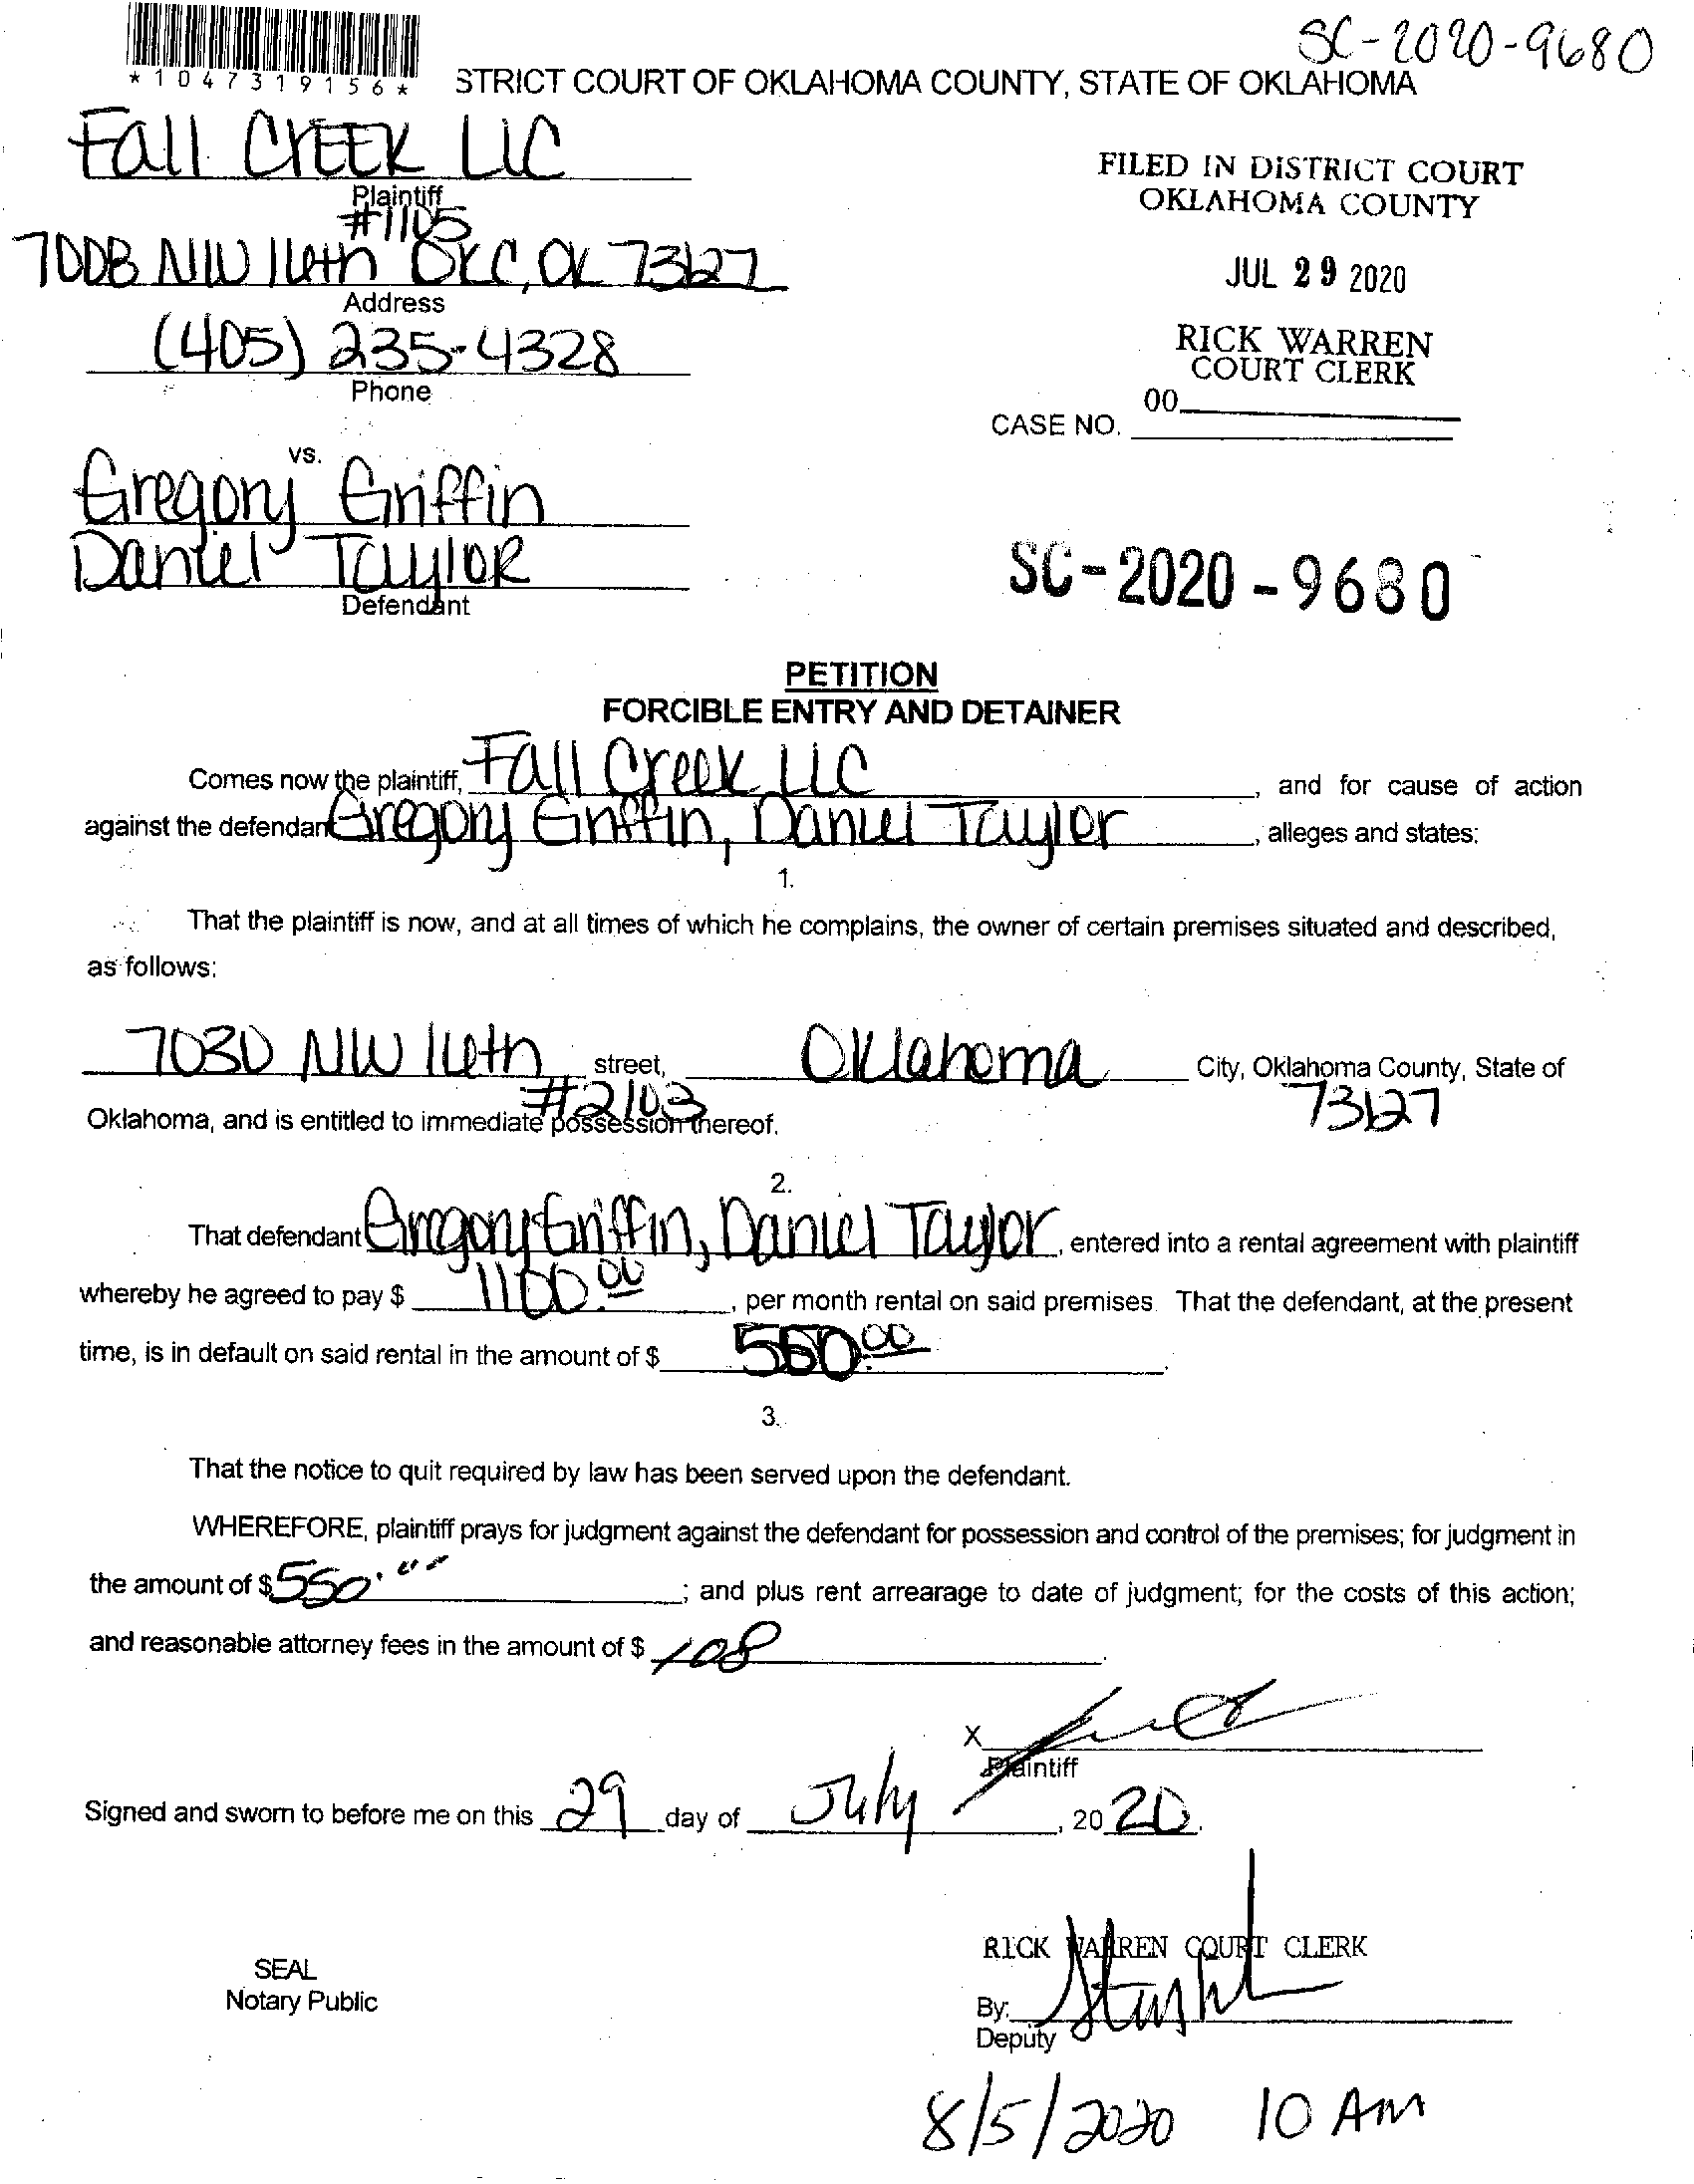 SC-2020-9680
*1047319156*
STRICT COURT OF OKLAHOMA COUNTY, STATE OF OKLAHOMA
Fall Creek LLC
Plaintiff
#1105
7008 NW 16th OKC, OK 73127
Address
(405) 235-4328
Phone
FILED IN DISTRICT COURT
OKLAHOMA COUNTY
JUL 29 2020
RICK WARREN
COURT CLERK
00
CASE NO.
vs.
Gregory Griffin
Daniel Taylor
Defendant
SC-2020-9680
PETITION
FORCIBLE ENTRY AND DETAINER
Comes now the plaintiff, Fall Creek LLC, and for cause of action
against the defendant Gregory Griffin, Daniel Taylor, alleges and states:
1.
That the plaintiff is now, and at all times of which he complains, the owner of certain premises situated and described,
as follows:
7030 NW 16th street, Oklahoma City, Oklahoma County, State of
#2103 73127
Oklahoma, and is entitled to immediate possession thereof.
2.
That defendant Gregory Griffin, Daniel Taylor, entered into a rental agreement with plaintiff
whereby he agreed to pay $ 1100.00, per month rental on said premises. That the defendant, at the present
time, is in default on said rental in the amount of $ 550.00.
3.
That the notice to quit required by law has been served upon the defendant.
WHEREFORE, plaintiff prays for judgment against the defendant for possession and control of the premises; for judgment in
the amount of $ 550.00; and plus rent arrearage to date of judgment; for the costs of this action;
and reasonable attorney fees in the amount of $ 108.
X
Plaintiff
Signed and sworn to before me on this 29 day of July, 20 20.
RICK WARREN COURT CLERK
SEAL
Notary Public
By:
Deputy
8/5/2020 10 AM